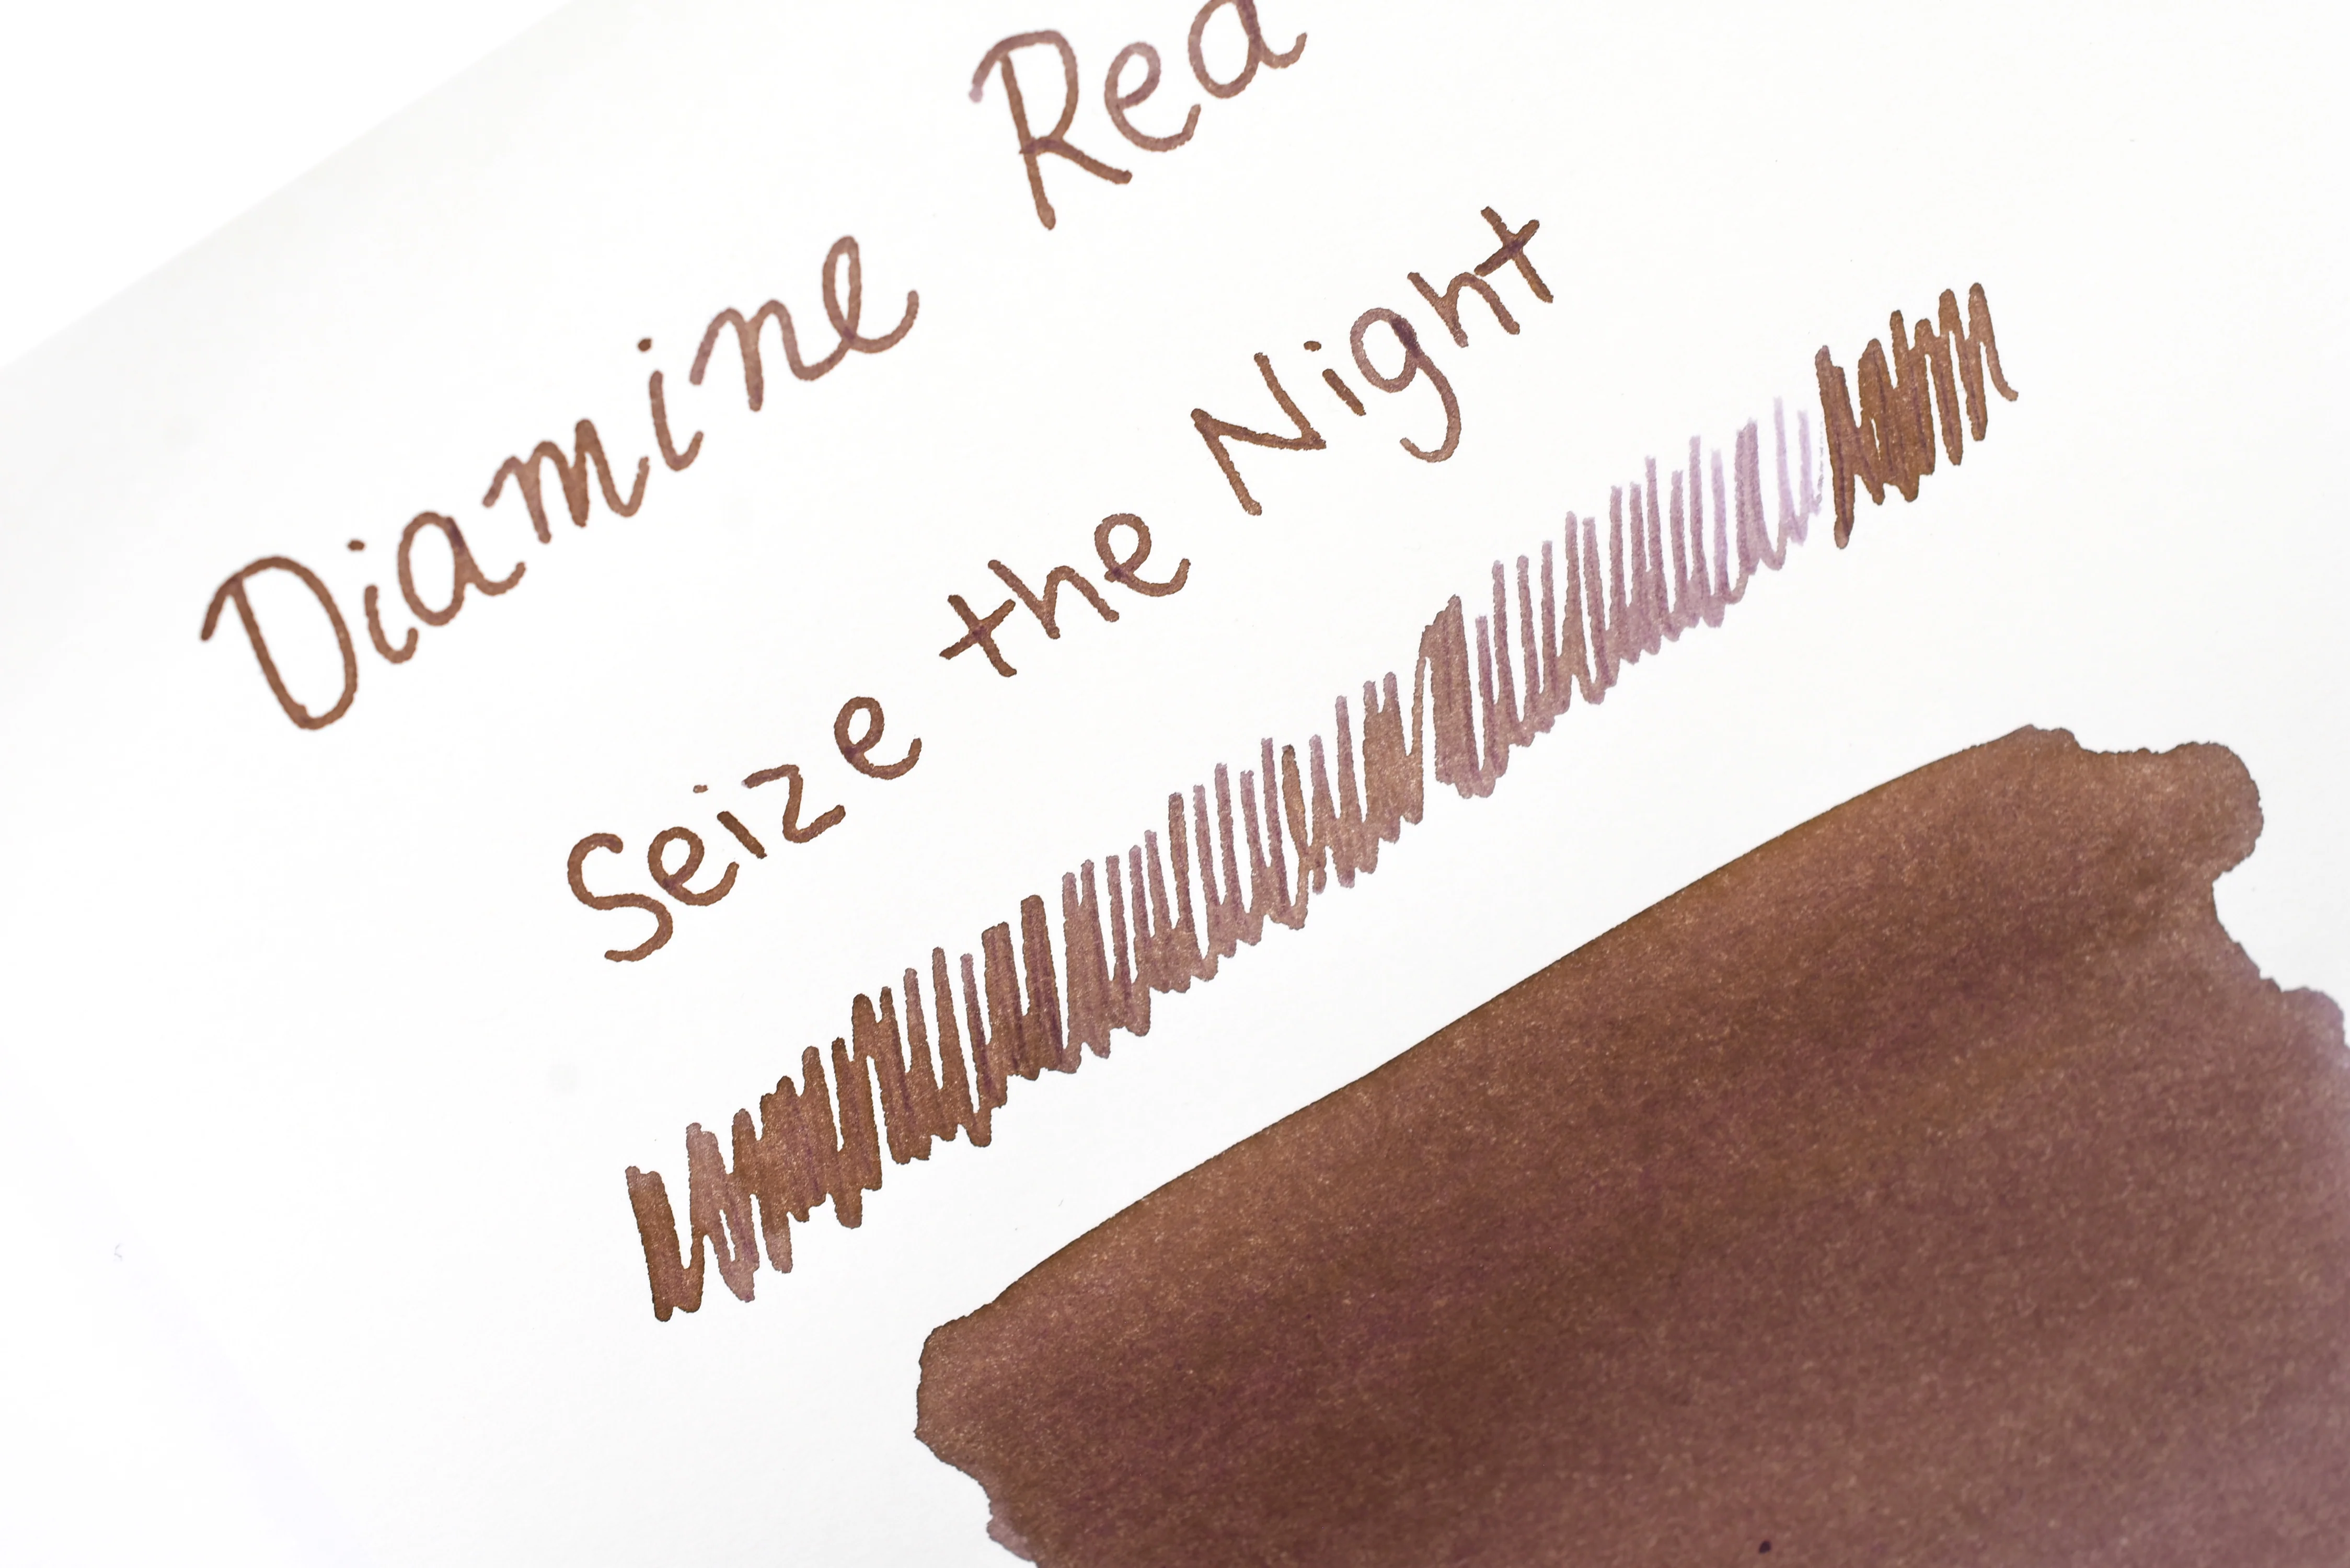 Diamine Red
Seize the Night